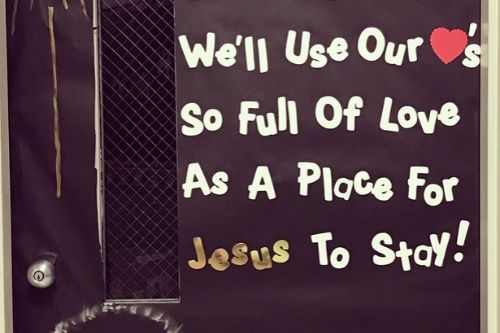 We'll Use Our ❤'s
So Full Of Love
As A Place For
Jesus To Stay!